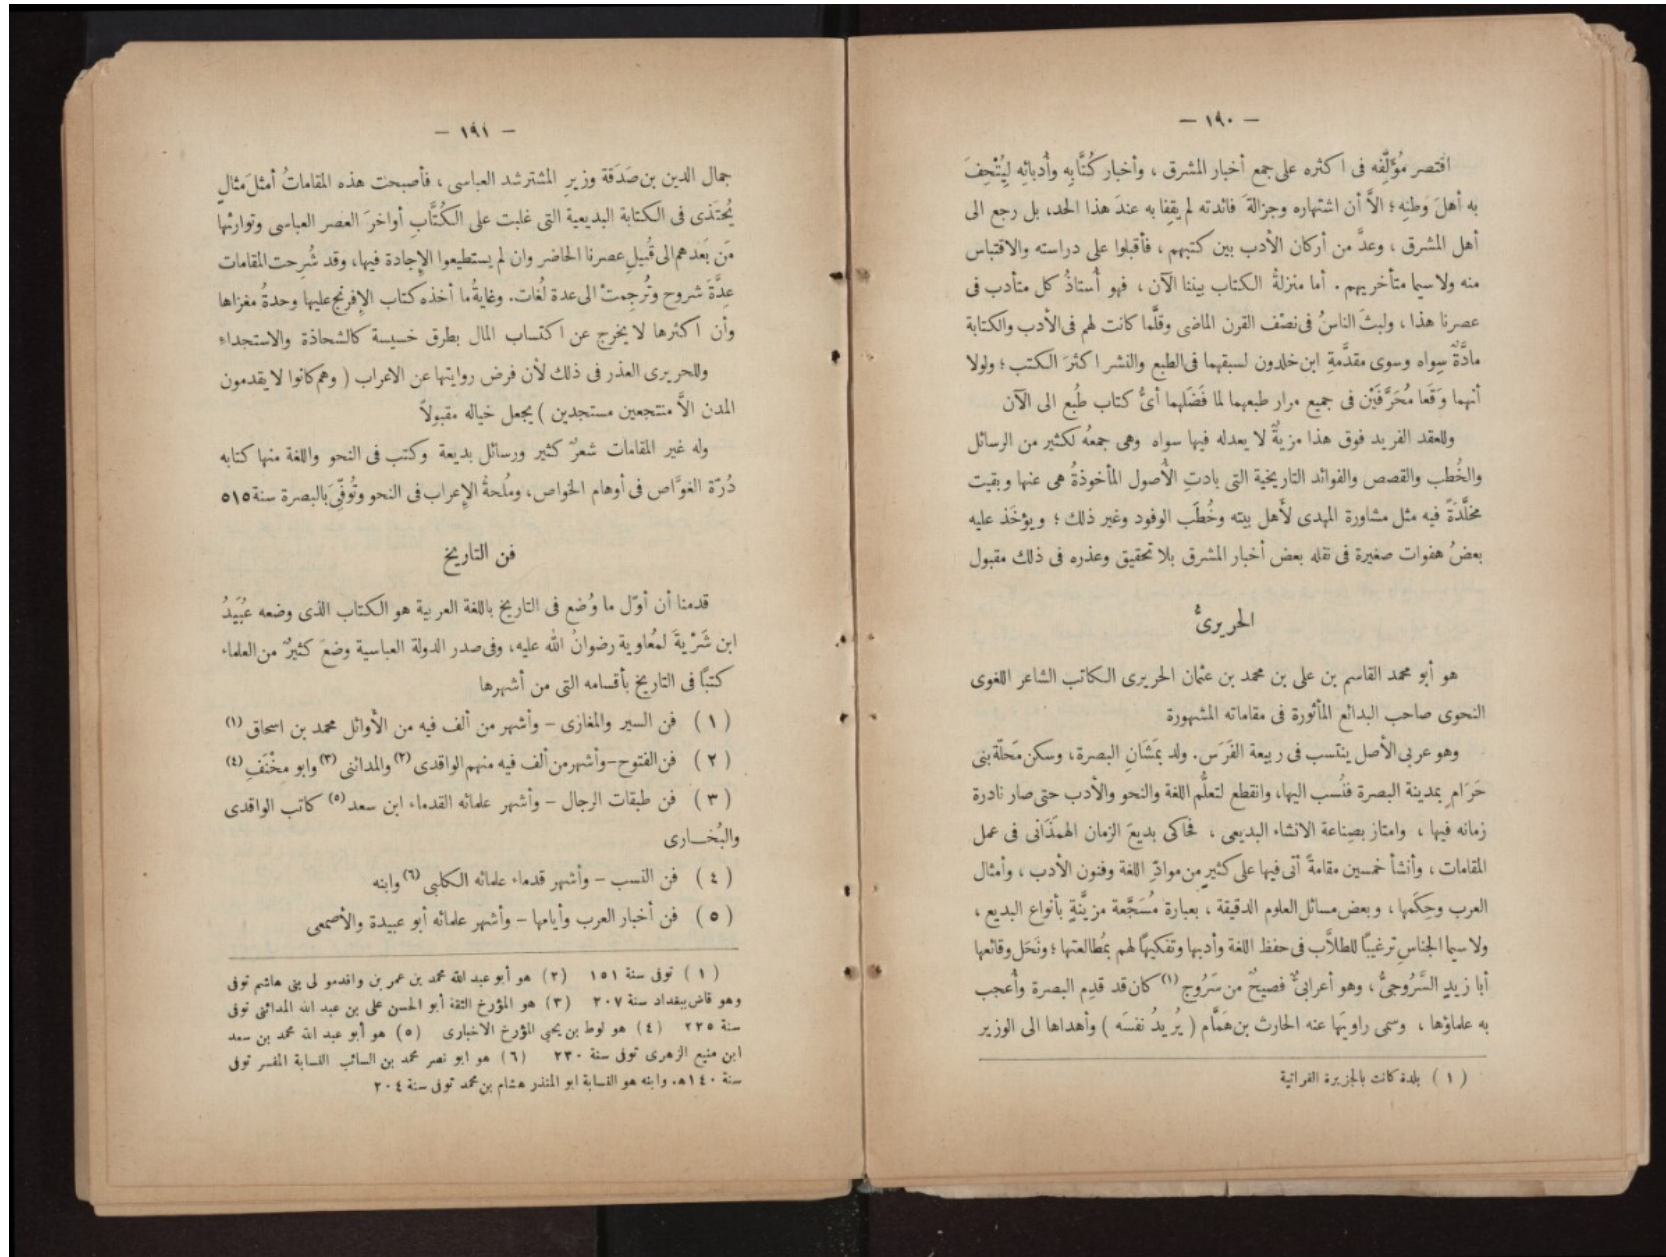 — ١٩٠ —
اقتصر مُؤَلِّفه فى اكثره على جمع أخبار المشرق ، وأخبار كُتَّابِه وأُدبائِه لِيُتْحِفَ
به أهلَ وطنِه ؛ الاَّ أن اشتهاره وجزالةَ فائدته لم يقِفا به عندَ هذا الحد، بل رجع الى
أهل المشرق ، وعدَّ من أركان الأدب بين كتبهم ، فأقبلوا على دراسته والاقتباس
منه ولاسيما متأخريهم . أما منزلةُ الكتاب بيننا الآن ، فهو أُستاذُ كل متأدب فى
عصرنا هذا ، ولبثَ الناسُ فى نصْف القرن الماضى وقلَّما كانت لهم فى الأدب والكتابة
مادَّةٌ سِواه وسوى مقدَّمةِ ابن خلدون لسبقهما فى الطبع والنشر اكثرَ الكتب ؛ ولولا
أنهما وَقَعَا مُحَرَّفَيْن فى جميع مرار طبعهما لما فَضَلَهما أىُّ كتاب طُبع الى الآن
وللعقد الفريد فوق هذا مزيةٌ لا يعدله فيها سواه وهى جمعهُ لكثير من الرسائل
والخُطب والقصص والفوائد التاريخية التى بادتِ الأُصول المأخوذةُ هى عنها وبقيت
مخلَّدَةً فيه مثل مشاورة المهدى لأَهل بيته وخُطَب الوفود وغير ذلك ؛ ويؤخَذ عليه
بعضُ هفوات صغيرة فى نقله بعض أخبار المشرق بلا تحقيق وعذره فى ذلك مقبول
الحريرىُّ
هو أبو محمد القاسم بن على بن محمد بن عثمان الحريرى الكاتب الشاعر اللغوى
النحوى صاحب البدائع المأثورة فى مقاماته المشهورة
وهو عربى الأصل ينتسب فى ربيعة الفَرَس . ولد بمَشَانِ البصرة، وسكن مَحَلَّة بنى
حَرَامٍ بمدينة البصرة فنُسب اليها، وانقطع لتعلُّم اللغة والنحو والأدب حتى صار نادرة
زمانه فيها ، وامتاز بصِناعة الانشاء البديعى ، فحاكى بديعَ الزمان الهمَذَانى فى عمل
المقامات ، وأنشأ خمسين مقامةً أتى فيها على كثيرٍ من موادِّ اللغة وفنون الأدب ، وأمثال
العرب وحِكَمها ، وبعض مسائل العلوم الدقيقة ، بعبارة مُسَجَّعة مزيَّنةٍ بأنواع البديع ،
ولاسيما الجناسِ ترغيبًا للطلاَّب فى حفظ اللغة وأدبها وتفكيهًا لهم بمُطالعتها ؛ ونَحَل وقائعها
أبا زيدٍ السَّرُوجىُّ ، وهو أعرابىٌّ فصيحٌ من سَرُوج (١) كان قد قدِم البصرة وأُعجب
به علماؤها ، وسمى راويَها عنه الحارث بن هَمَّام ( يُريدُ نفسَه ) وأهداها الى الوزير
( ١ ) بلدة كانت بالجزيرة الفراتية
— ١٩١ —
جمال الدين بن صَدَقة وزيرِ المشترشد العباسى ، فأصبحت هذه المقاماتُ أمثلَ مثالٍ
يُحتَذى فى الكتابة البديعية التى غلبت على الكُتَّابِ أواخرَ العصر العباسى وتوارثها
مَن بَعدهم الى قُبيل عصرنا الحاضر وان لم يستطيعوا الإِجادة فيها، وقد شُرِحت المقامات
عِدَّةَ شروح وتُرجمتْ الى عدة لُغات. وغايةُ ما أخذه كتاب الإِفرنج عليها وحدةُ مغزاها
وأن اكثرها لا يخرج عن اكتساب المال بطرق خسيسة كالشحاذة والاستجداء
وللحريرى العذر فى ذلك لأن فرض روايتها عن الاعراب ( وهم كانوا لا يقدمون
المدن الاَّ منتجعين مستجدين ) يجعل خياله مقبولاً
وله غير المقامات شعرٌ كثير ورسائل بديعة وكتب فى النحو واللغة منها كتابه
دُرّة الغوَّاص فى أوهام الخواص، ومُلحةُ الإِعراب فى النحو وتُوفّىَ بالبصرة سنة ٥١٥
فن التاريخ
قدمنا أن أوّل ما وُضع فى التاريخ باللغة العربية هو الكتاب الذى وضعه عُبَيدُ
ابن شَرْيةَ لمعُاوية رضوانُ الله عليه، وفى صدر الدولة العباسية وضعَ كثيرٌ من العلماء
كتبًا فى التاريخ بأقسامه التى من أشهرها
( ١ ) فن السير والمغازى – وأشهر من ألف فيه من الأوائل محمد بن اسحاق (١)
( ٢ ) فن الفتوح – وأشهر من ألف فيه منهم الواقدى (٢) والمدائنى (٣) وابو مِخْنَفٍ (٤)
( ٣ ) فن طبقات الرجال – وأشهر علمائه القدماء ابن سعد (٥) كاتب الواقدى
والبُخـارى
( ٤ ) فن النسب – وأشهر قدماء علمائه الكلبى (٦) وابنه
( ٥ ) فن أخبار العرب وأيامها – وأشهر علمائه أبو عبيدة والأصمعى
( ١ ) توفى سنة ١٥١ ( ٢ ) هو أبو عبد الله محمد بن عمر بن واقدمو لى بنى هاشم توفى
وهو قاض ببغداد سنة ٢٠٧ ( ٣ ) هو المؤرخ الثقة أبو الحسن على بن عبد الله المدائنى توفى
سنة ٢٢٥ ( ٤ ) هو لوط بن يحيي المؤرخ الاخبارى ( ٥ ) هو أبو عبد الله محمد بن سعد
ابن منيع الزهرى توفى سنة ٢٣٠ ( ٦ ) هو ابو نصر محمد بن السائب النسابة المفسر توفى
سنة ١٤٠ هـ. وابنه هو النسابة ابو المنذر هشام بن محمد توفى سنة ٢٠٤